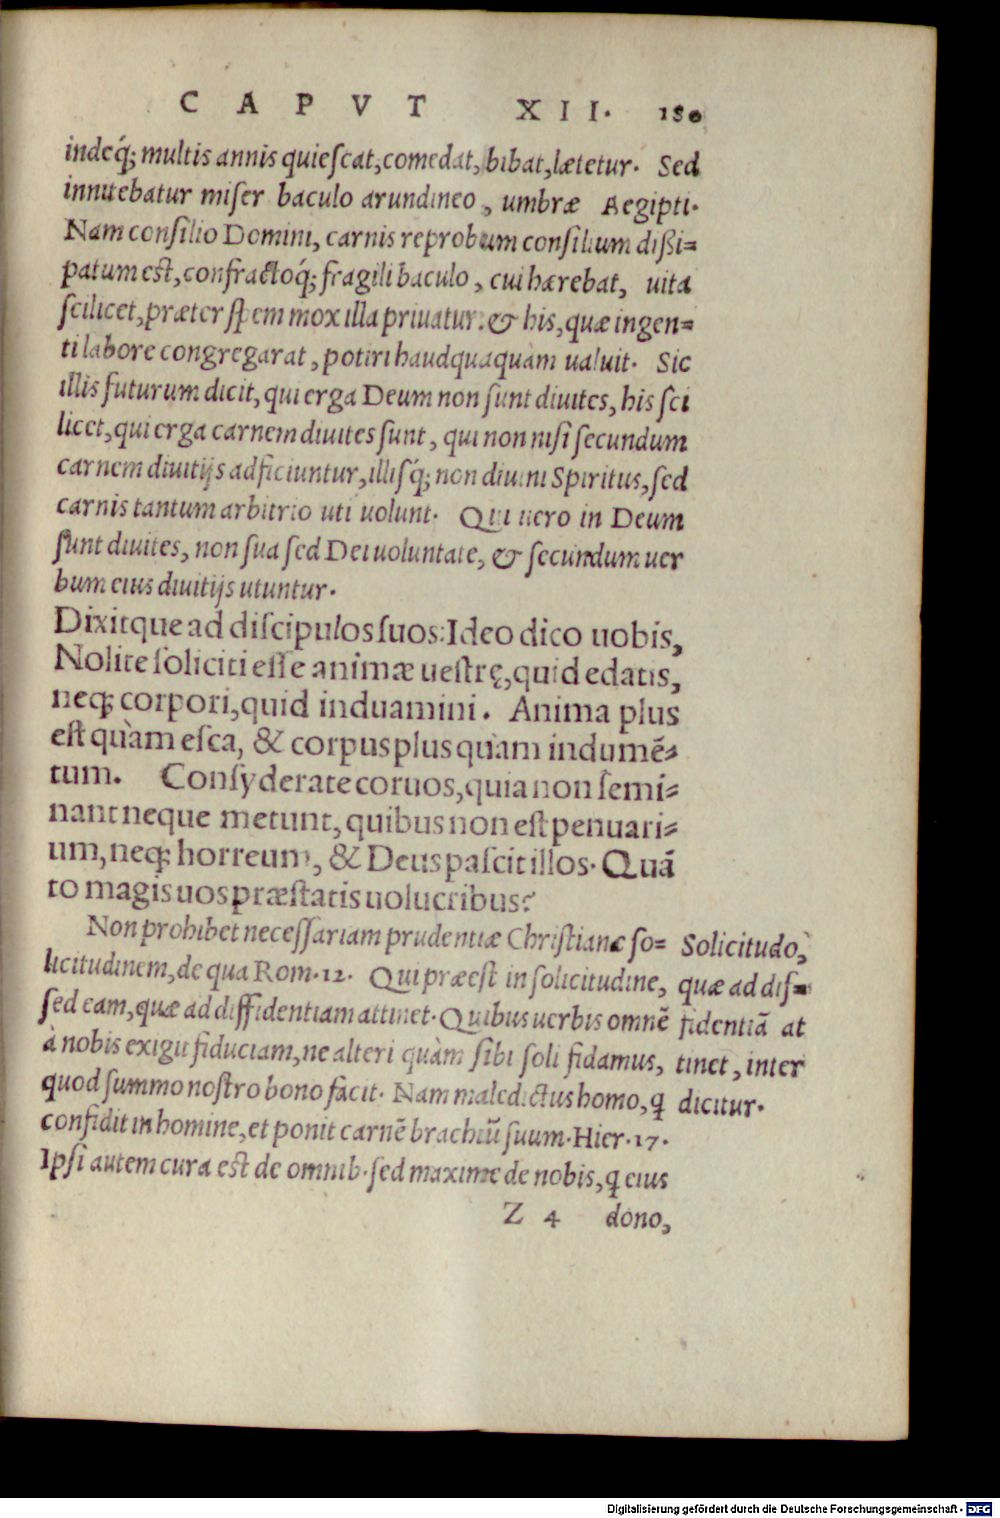 CAPVT XII. 180
indeq́; multis annis quieſcat, comedat, bibat, lætetur. Sed
innitebatur miſer baculo arundineo, umbræ Aegipti.
Nam conſilio Domini, carnis reprobum conſilium dißi=
patum est, confractoq́; fragili baculo, cui hærebat, uita
ſcilicet, præter ſpem mox illa priuatur. & his, quæ ingen=
ti labore congregarat, potiri haudquaquam ualuit. Sic
illis futurum dicit, qui erga Deum non ſunt diuites, his ſci
licet, qui erga carnem diuites ſunt, qui non niſi ſecundum
carnem diuitijs adficiuntur, illiſq́; non diuini Spiritus, ſed
carnis tantum arbitrio uti uolunt. Qui uero in Deum
ſunt diuites, non ſua ſed Dei uoluntate, & ſecundum uer
bum eius diuitijs utuntur.
Dixitque ad diſcipulos ſuos: Ideo dico uobis,
Nolite ſoliciti eſſe animæ ueſtrę, quid edatis,
neq; corpori, quid induamini. Anima plus
eſt quàm eſca, & corpus plus quàm indumẽ=
tum. Conſyderate coruos, quia non ſemi=
nant neque metunt, quibus non eſt penuari=
um, neq; horreum, & Deus paſcit illos. Quã
to magis uos præſtatis uolucribus?
Non prohibet neceſſariam prudentiæ Chriſtianæ ſo=
licitudinem, de qua Rom. 12. Qui præeſt in ſolicitudine,
ſed eam, quæ ad diffidentiam attinet. Quibus uerbis omnẽ
à nobis exigit fiduciam, ne alteri quàm ſibi ſoli fidamus,
quod ſummo noſtro bono facit. Nam maledictus homo, q
confidit in homine, et ponit carnẽ brachiũ ſuum. Hier. 17.
Ipſi autem cura est de omnib. ſed maxime de nobis, q eius
Solicitudo,
quæ ad diſ=
fidentiã at
tinet, inter
dicitur.
Z 4 dono,
Digitalisierung gefördert durch die Deutsche Forschungsgemeinschaft - DFG